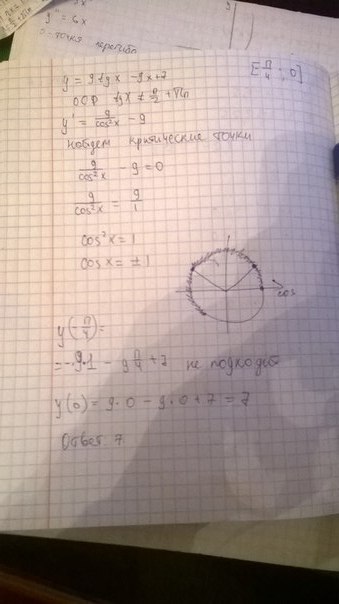 y'' = 6x
- точка перегиба
y = 9tgx - 9x + 7 [-π/4 ; 0]
ООФ tgx ≠ π/2 + πn
y' = 9/cos²x - 9
найдем критические точки
9/cos²x - 9 = 0
9/cos²x = 9/1
cos²x = 1
cosx = ±1
cos
y(-π/4) =
= -9·1 - 9π/4 + 7 не подходит
y(0) = 9·0 - 9·0 + 7 = 7
Ответ 7